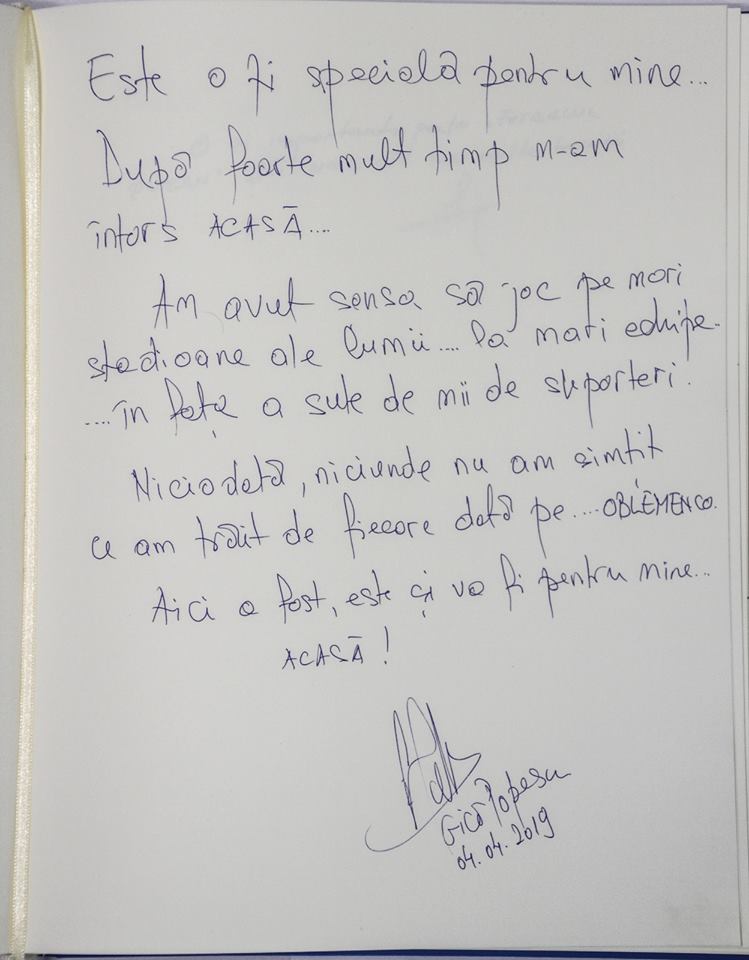 Este o zi specială pentru mine...
După foarte mult timp m-am
întors ACASĂ....
Am avut sansa să joc pe mari
stadioane ale lumii.... la mari echipe.
....în fața a sute de mii de suporteri.
Niciodată, niciunde nu am simțit
ce am trăit de fiecare dată pe.... OBLEMENCO.
Aici a fost, este și va fi pentru mine...
ACASĂ!
Gică Popescu
04.04.2019